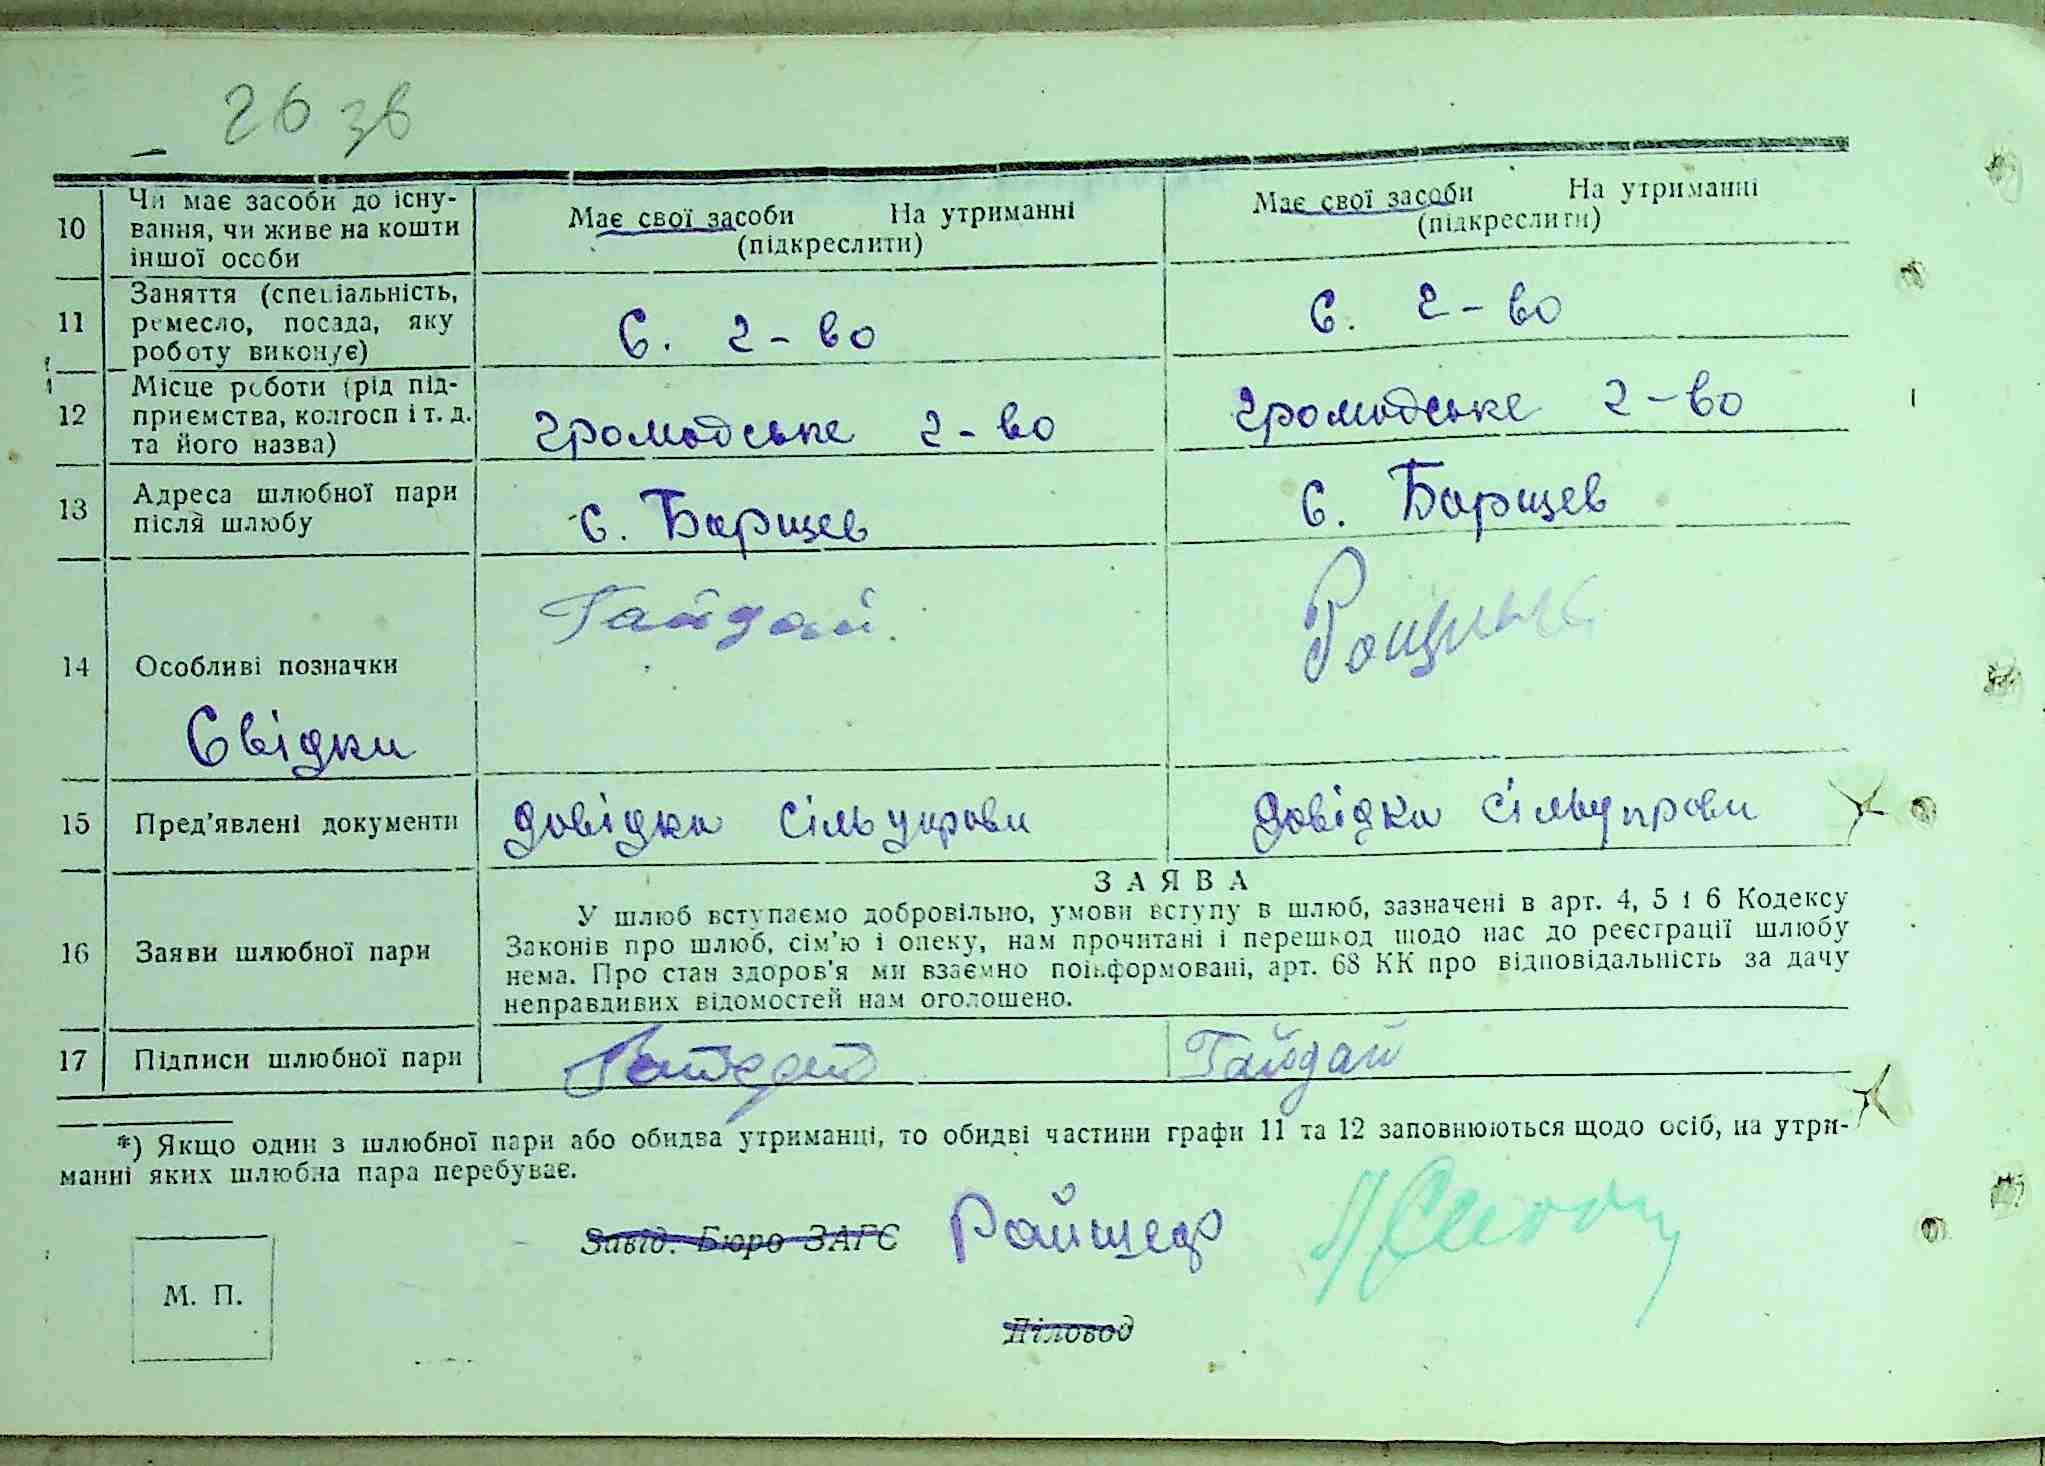 26 зв
10 Чи має засоби до існу-
вання, чи живе на кошти
іншої особи
Має свої засоби На утриманні
(підкреслити)
Має свої засоби На утриманні
(підкреслити)
11 Заняття (спеціальність,
ремесло, посада, яку
роботу виконує)
С. г-во
С. г-во
12 Місце роботи (рід під-
приємства, колгосп і т. д.
та його назва)
громадське г-во
громадське г-во
13 Адреса шлюбної пари
після шлюбу
с. Борщев
с. Борщев
14 Особливі позначки
Свідки
Гайдай
15 Пред'явлені документи
довідка сільуправи
довідка сільуправи
16 Заяви шлюбної пари
ЗАЯВА
У шлюб вступаємо добровільно, умови вступу в шлюб, зазначені в арт. 4, 5 і 6 Кодексу
Законів про шлюб, сім'ю і опеку, нам прочитані і перешкод щодо нас до реєстрації шлюбу
нема. Про стан здоров'я ми взаємно поінформовані, арт. 68 КК про відповідальність за дачу
неправдивих відомостей нам оголошено.
17 Підписи шлюбної пари
Гайдай
Гайдай
*) Якщо один з шлюбної пари або обидва утриманці, то обидві частини графи 11 та 12 заповнюються щодо осіб, на утри-
манні яких шлюбна пара перебуває.
Завід. Бюро ЗАГС
М. П.
Діловод